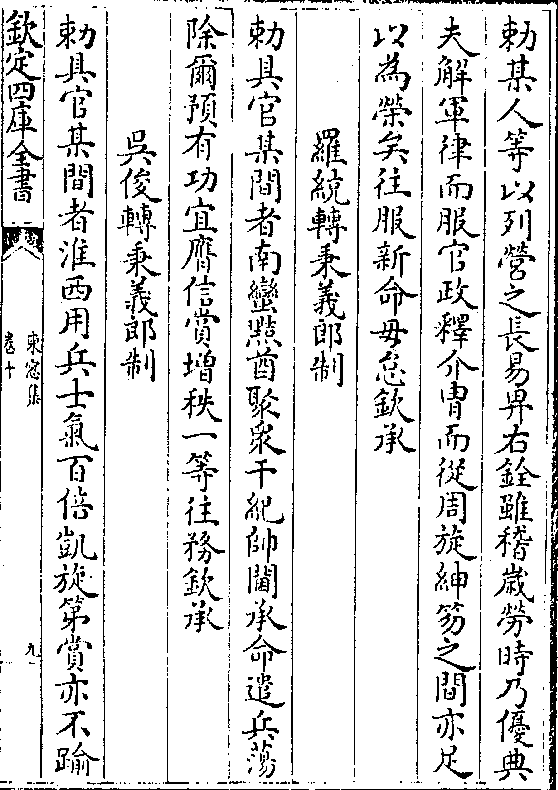 勅某人等以列營之長易畀右銓雖稽嵗勞時乃優典
夫解軍律而服官政釋介胄而從周旋紳笏之間亦足
以為榮矣往服新命毋怠欽承
羅統轉秉義郎制
勅具官某間者南蠻黠酋聚衆干紀帥閫承命遣兵蕩
除爾預有功宜膺信賞增秩一等往務欽承
吳俊轉秉義郎制
勅具官某間者淮西用兵士氣百倍凱旋第賞亦不踰
欽定四庫全書
東窓集
卷十
九